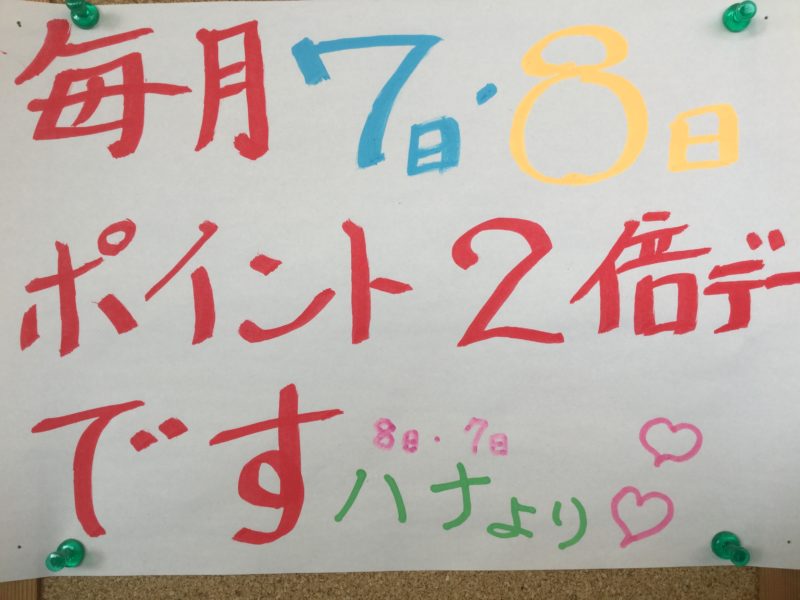 毎月7日・8日
ポイント2倍デー
です
8日・7日
ハナより